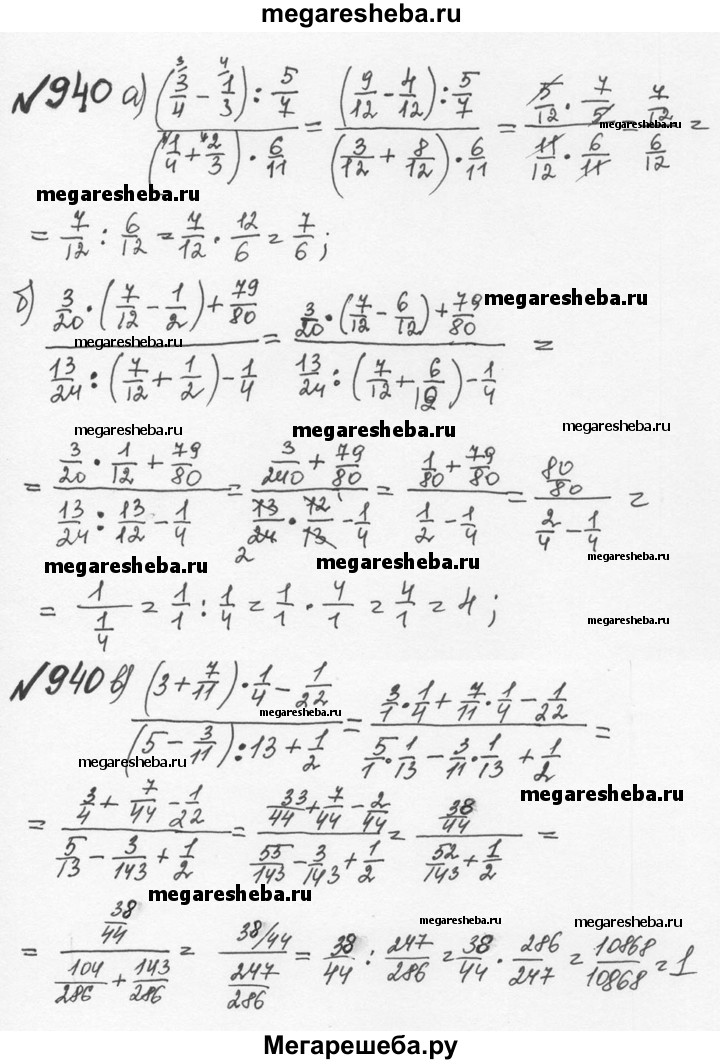 megaresheba.ru
№940 а) ((3/4 - 1/3) : 5/7) / ((1/4 + 2/3) · 6/11) = ((9/12 - 4/12) : 5/7) / ((3/12 + 8/12) · 6/11) = (5/12 · 7/5) / (11/12 · 6/11) = (7/12) / (6/12) =
megaresheba.ru
megaresheba.ru
= 7/12 : 6/12 = 7/12 · 12/6 = 7/6 ;
б) (3/20 · (7/12 - 1/2) + 79/80) / (13/24 : (7/12 + 1/2) - 1/4) = (3/20 · (7/12 - 6/12) + 79/80) / (13/24 : (7/12 + 6/12) - 1/4) =
megaresheba.ru
megaresheba.ru
megaresheba.ru
megaresheba.ru
megaresheba.ru
= (3/20 · 1/12 + 79/80) / (13/24 : 13/12 - 1/4) = (3/240 + 79/80) / (13/24 · 12/13 - 1/4) = (1/80 + 79/80) / (1/2 - 1/4) = (80/80) / (2/4 - 1/4) =
megaresheba.ru
megaresheba.ru
megaresheba.ru
= 1 / (1/4) = 1/1 : 1/4 = 1/1 · 4/1 = 4/1 = 4 ;
megaresheba.ru
№940 в) ((3 + 7/11) · 1/4 - 1/22) / ((5 - 3/11) : 13 + 1/2) = (3/1 · 1/4 + 7/11 · 1/4 - 1/22) / (5/1 · 1/13 - 3/11 · 1/13 + 1/2) =
megaresheba.ru
megaresheba.ru
megaresheba.ru
= (3/4 + 7/44 - 1/22) / (5/13 - 3/143 + 1/2) = (33/44 + 7/44 - 2/44) / (55/143 - 3/143 + 1/2) = (38/44) / (52/143 + 1/2) =
megaresheba.ru
megaresheba.ru
megaresheba.ru
= (38/44) / (104/286 + 143/286) = (38/44) / (247/286) = 38/44 : 247/286 = 38/44 · 286/247 = 10868/10868 = 1
Мегарешеба.ру